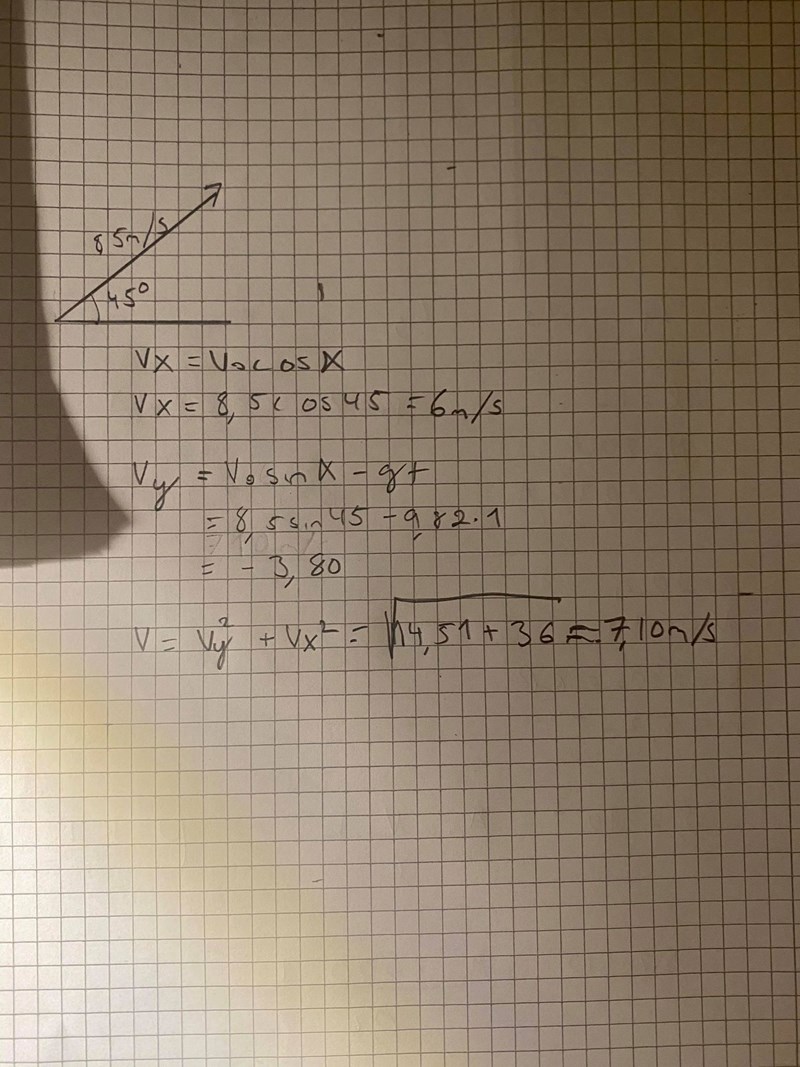 8,5m/s
45°
Vx = V₀cosα
Vx = 8,5cos45 = 6m/s
Vy = V₀sinα - gt
= 8,5sin45 - 9,82·1
= -3,80
V = Vy² + Vx² = √14,51 + 36 = 7,10m/s